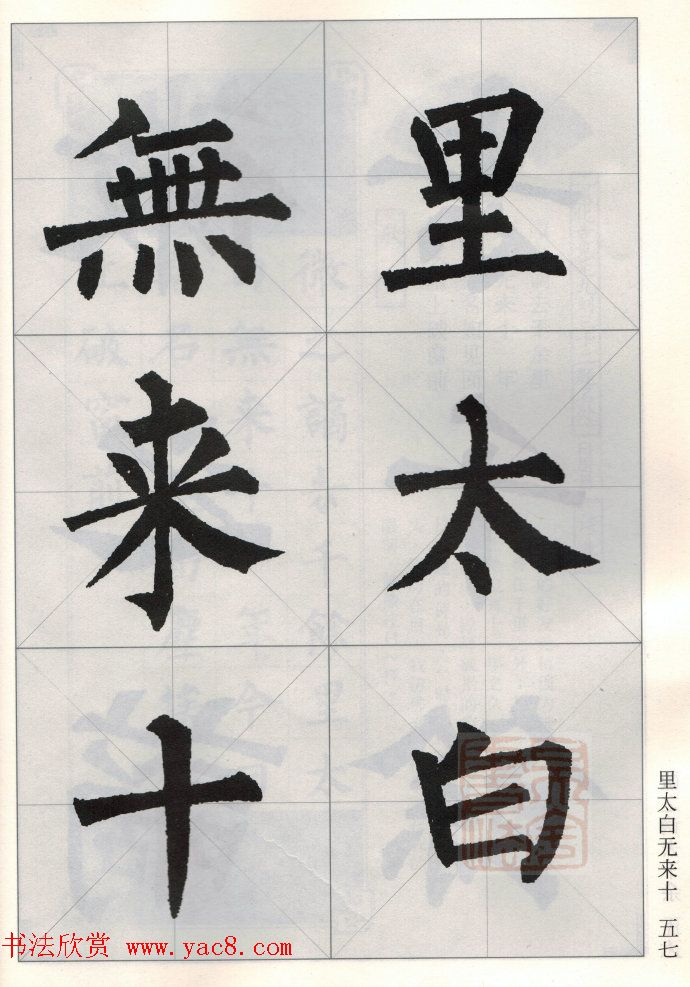 里太白
無来十
里太白无来十 五七
书法欣赏 www.yac8.com